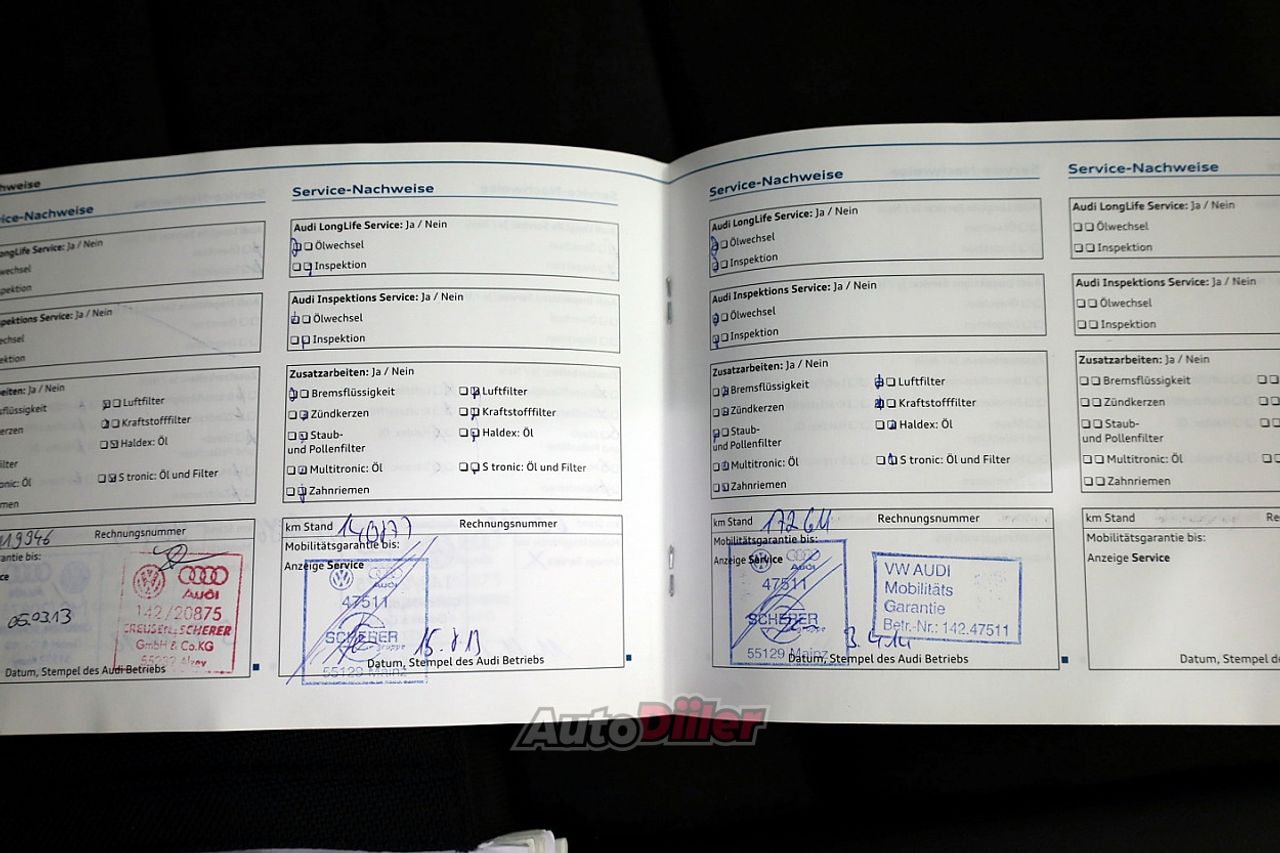 Service-Nachweise
Audi LongLife Service: Ja / Nein
Ölwechsel
Inspektion
Inspektions Service: Ja / Nein
Zusatzarbeiten: Ja / Nein
Luftfilter
Kraftstofffilter
Haldex: Öl
S tronic: Öl und Filter
Rechnungsnummer
05.03.13
AUDI
142/20875
GmbH & Co.KG
Datum, Stempel des Audi Betriebs
Service-Nachweise
Audi LongLife Service: Ja / Nein
Ölwechsel
Inspektion
Audi Inspektions Service: Ja / Nein
Ölwechsel
Inspektion
Zusatzarbeiten: Ja / Nein
Bremsflüssigkeit Luftfilter
Zündkerzen Kraftstofffilter
Staub- Haldex: Öl
und Pollenfilter
Multitronic: Öl S tronic: Öl und Filter
Zahnriemen
km Stand Rechnungsnummer
Mobilitätsgarantie bis:
Anzeige Service
47511
SCHERER
15.8.13
Datum, Stempel des Audi Betriebs
55129 Mainz
Service-Nachweise
Audi LongLife Service: Ja / Nein
Ölwechsel
Inspektion
Audi Inspektions Service: Ja / Nein
Ölwechsel
Inspektion
Zusatzarbeiten: Ja / Nein
Bremsflüssigkeit Luftfilter
Zündkerzen Kraftstofffilter
Staub- Haldex: Öl
und Pollenfilter
Multitronic: Öl S tronic: Öl und Filter
Zahnriemen
km Stand Rechnungsnummer
Mobilitätsgarantie bis:
Anzeige Service
47511
SCHERER
55129 Mainz
3.4.14
VW AUDI
Mobilitäts
Garantie
Betr.-Nr.: 142.47511
Datum, Stempel des Audi Betriebs
Service-Nachweise
Audi LongLife Service: Ja / Nein
Ölwechsel
Inspektion
Audi Inspektions Service: Ja / Nein
Ölwechsel
Inspektion
Zusatzarbeiten: Ja / Nein
Bremsflüssigkeit
Zündkerzen
Staub-
und Pollenfilter
Multitronic: Öl
Zahnriemen
km Stand
Mobilitätsgarantie bis:
Anzeige Service
Datum, Stempel des
AutoDiiler